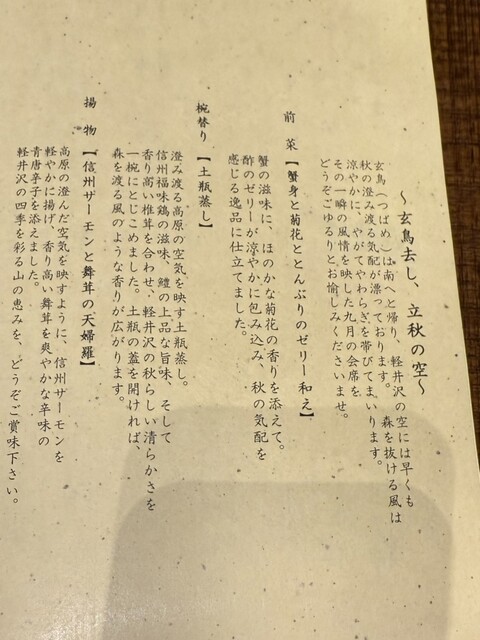 ～玄鳥去し、立秋の空～
玄鳥（つばめ）は南へと帰り、軽井沢の空には早くも
秋の澄み渡る気配が漂っております。　森を抜ける風は
涼やかに、やがてやわらぎを帯びてまいります。
その一瞬の風情を映した九月の会席を
どうぞごゆるりとお愉しみくださいませ。
前　菜【蟹身と菊花ととんぶりのゼリー和え】
蟹の滋味に、ほのかな菊花の香りを添えて。
酢のゼリーが涼やかに包み込み、秋の気配を
感じる逸品に仕立てました。
椀替り【土瓶蒸し】
澄み渡る高原の空気を映す土瓶蒸し。
信州福味鶏の滋味、鱧の上品な旨味、そして
香り高い椎茸を合わせ、軽井沢の秋らしい清らかさを
一椀にとじこめました。土瓶の蓋を開ければ、
森を渡る風のような香りが広がります。
揚　物【信州サーモンと舞茸の天婦羅】
高原の澄んだ空気を映すように、信州サーモンを
軽やかに揚げ、香り高い舞茸を爽やかな辛味の
青唐辛子を添えました。
軽井沢の四季を彩る山の恵みを、どうぞご賞味下さい。